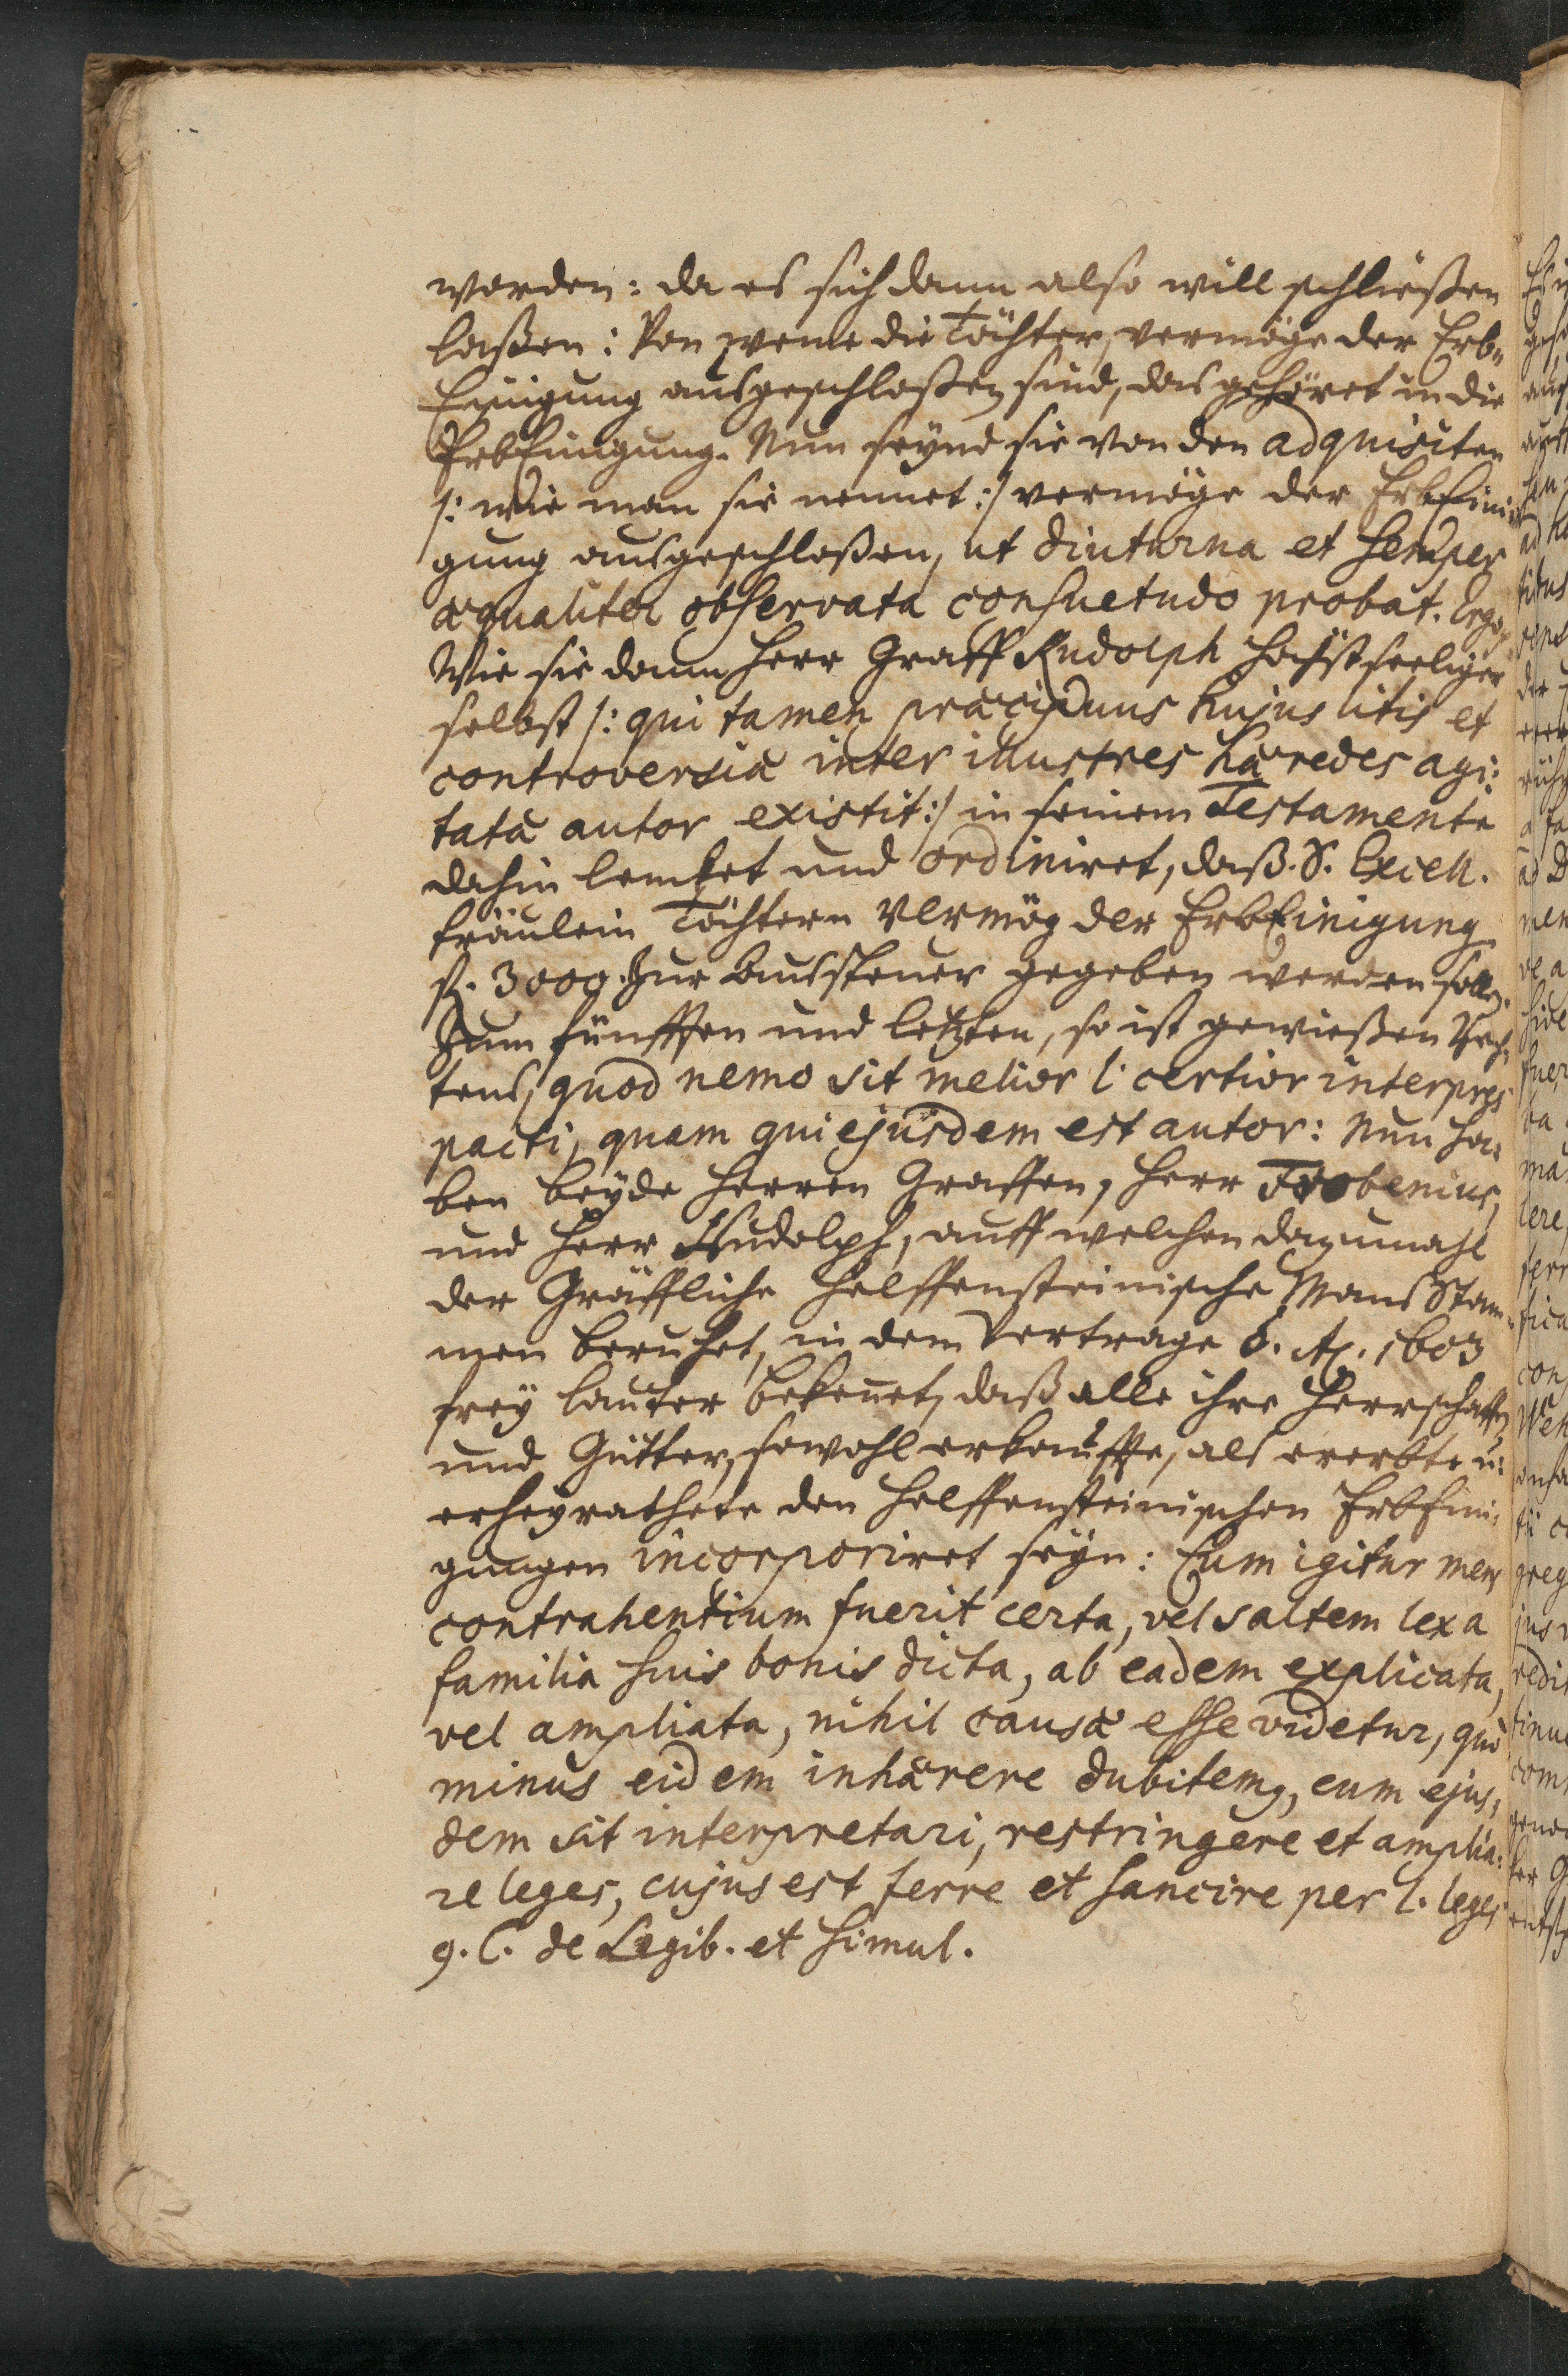 worden: da es sich dann also will schließen
laßen: Von weme die Töchter, vermöge der Erb-
Einigung ausgeschloßen sind, das gehöret in die
ErbEinigung. Nun seynd sie von den adquisiten
/: wie man sie nennet :/ vermöge der ErbEini-
gung ausgeschloßen, ut diuturna et semper
æqualiter observata consuetudo probat. Ergo,
Wie sie dann Herr Graff Rudolph höchstseeliger
selbst /: qui tamen præcipuus hujus litis et
controversiæ inter illustres hæredes agi-
tatæ autor existit :/ in seinem Testamente
dahin lencket und ordiniret, daß S. Excell.
fräulein Töchtern Vermög der ErbEinigung
fl. 3000. zur Aussteuer gegeben werden sollen.
Zum fünfften und letzten, so ist gewießen Rech-
tens, quod nemo sit melior l. certior interpres
pacti, quam qui ejusdem est autor: Nun ha-
ben beyde Herren Graffen, Herr Frobenius,
und Herr Rudolph, auff welchen dazumahl
der Gräffliche Helffensteinische MansStam-
men beruhet, in dem Vertrage d. A. 1603
frey lauter bekennet, daß alle ihre Herrschafften
und Gütter, sowohl erkauffte, als ererbte u.
erheyrathete den Helffensteinischen ErbEini-
gungen incorporiret seyn: Cum igitur mens
contrahentium fuerit certa, vel saltem lex a
familia suis bonis dicta, ab eadem explicata,
vel ampliata, nihil causæ esse videtur, quò
minus eidem inhærere dubitemus, cum ejus-
dem sit interpretari, restringere et amplia-
re leges, cujus est ferre et sancire per l. leges
9. C. de Legib. et simul.